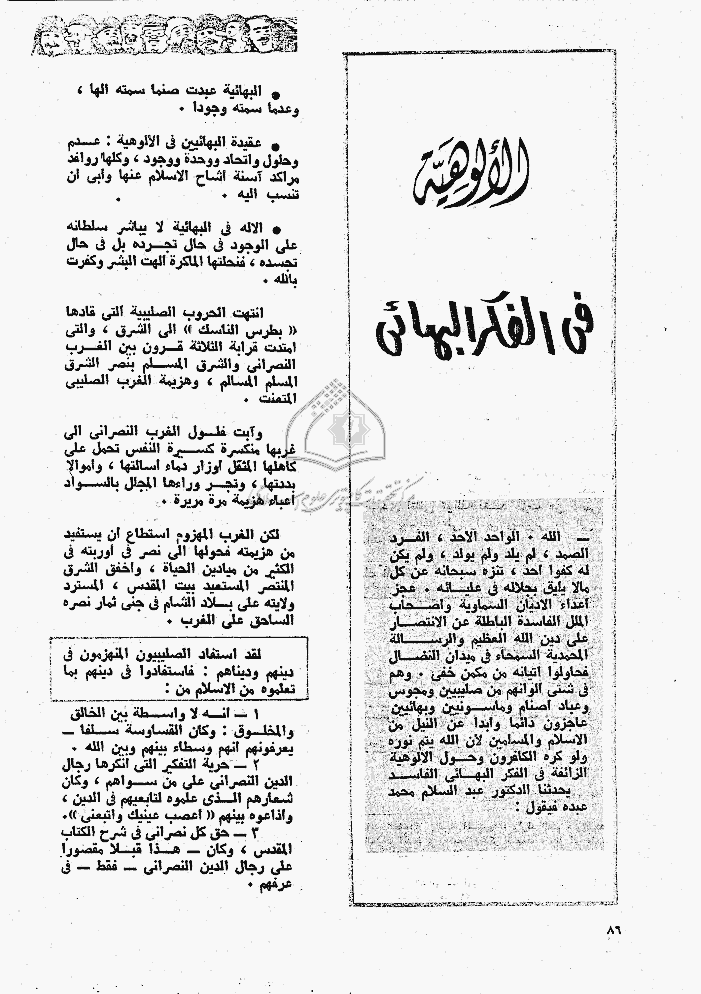 الألوهية
فى الفكر البهائى
— الله • الواحد الأحد ، الفـرد
الصمد ، لم يلد ولم يولد ، ولم يكن
له كفوا أحد ، تنزه سبحانه عن كل
مالا يليق بجلاله فى عليـائه • عجز
أعداء الأديان السماوية وأصـحاب
الملل الفاسدة الباطلة عن الانتصـار
على دين الله العظيم والرسـالة
المحمدية السمحاء فى ميدان النضـال
فحاولوا اتيانه من مكمن خفى • وهم
فى شتى ألوانهم من صليبيين ومجوس
وعباد أصنام وماسـونيين وبهائيين
عاجزون دائما وأبدا عن النيل من
الاسلام والمسلمين لأن الله يتم نوره
ولو كره الكافرون وحـول الألوهية
الزائفة فى الفكر البهـائى الفاسـد
يحدثنا الدكتور عبد السلام محمد
عبده فيقول :
• البهائية عبدت صنما سمته الها ،
وعدما سمته وجودا •
• عقيدة البهائيين فى الألوهية : عـدم
وحلول واتحاد ووحدة ووجود ، وكلها روافد
مراكد آسنة أشاح الاسلام عنها وأبى أن
تنسب اليه •
• الاله فى البهائية لا يباشر سلطانه
على الوجود فى حال تجـرده بل فى حال
تجسده ، فنحلتها الماكرة ألهت البشر وكفرت
بالله •
انتهت الحروب الصليبية التى قادها
« بطرس الناسك » الى الشرق ، والتى
امتدت قرابة الثلاثة قـرون بين الغـرب
النصرانى والشرق المسـلم بنصر الشرق
المسلم المسالم ، وهزيمة الغرب الصليبى
المتعنت •
وآبت فلـول الغرب النصرانى الى
غربها منكسرة كسـيرة النفس تحمل على
كاهلها المثقل أوزار دماء أسالتها ، وأموالا
بددتها ، وتجـر وراءها المجلل بالسـواد
أعباء هزيمة مرة مريرة •
لكن الغرب المهزوم استطاع أن يستفيد
من هزيمته فحولها الى نصر فى أوربته فى
الكثير من ميادين الحياة ، وأخفق الشرق
المنتصر المستعيد بيت المقدس ، المسترد
ولايته على بـلاد الشام فى جنى ثمار نصره
الساحق على الغرب •
لقد استفاد الصليبيون المنهزمون فى
دينهم ودنياهم : فاستفادوا فى دينهم بما
تعلموه من الاسلام من :
١ — انـه لا واسـطة بين الخالق
والمخلـوق : وكان القساوسة سـلفا —
يعرفونهم أنهم وسطاء بينهم وبين الله •
٢ — حرية التفكير التى أنكرها رجال
الدين النصرانى على من سـواهم ، وكان
شعارهم الـذى علموه لتابعيهم فى الدين ،
وأذاعوه بينهم « أعصب عينيك واتبعنى »•
٣ — حق كل نصرانى فى شرح الكتاب
المقدس ، وكان — هـذا قبـلا مقصورا
على رجال الدين النصرانى — فقط — فى
عرفهم •
٨٦